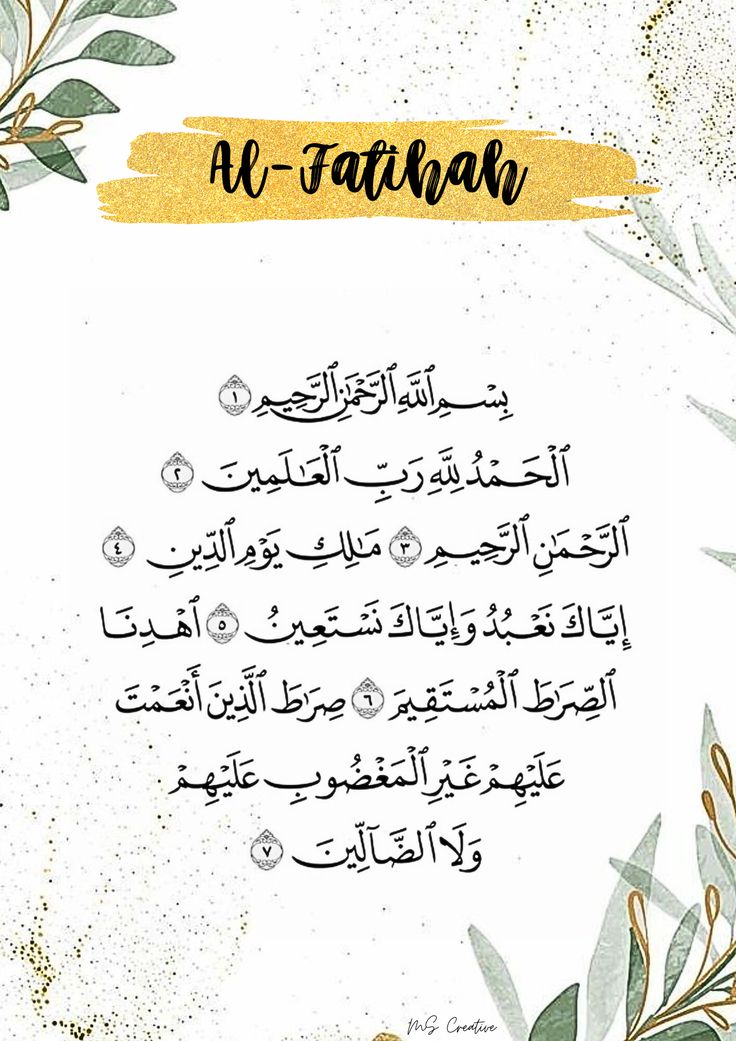 Al-Fatihah
بِسْمِ ٱللَّهِ ٱلرَّحْمَٰنِ ٱلرَّحِيمِ ١
ٱلْحَمْدُ لِلَّهِ رَبِّ ٱلْعَٰلَمِينَ ٢
ٱلرَّحْمَٰنِ ٱلرَّحِيمِ ٣ مَٰلِكِ يَوْمِ ٱلدِّينِ ٤
إِيَّاكَ نَعْبُدُ وَإِيَّاكَ نَسْتَعِينُ ٥ ٱهْدِنَا
ٱلصِّرَٰطَ ٱلْمُسْتَقِيمَ ٦ صِرَٰطَ ٱلَّذِينَ أَنْعَمْتَ
عَلَيْهِمْ غَيْرِ ٱلْمَغْضُوبِ عَلَيْهِمْ
وَلَا ٱلضَّآلِّينَ ٧
MS Creative